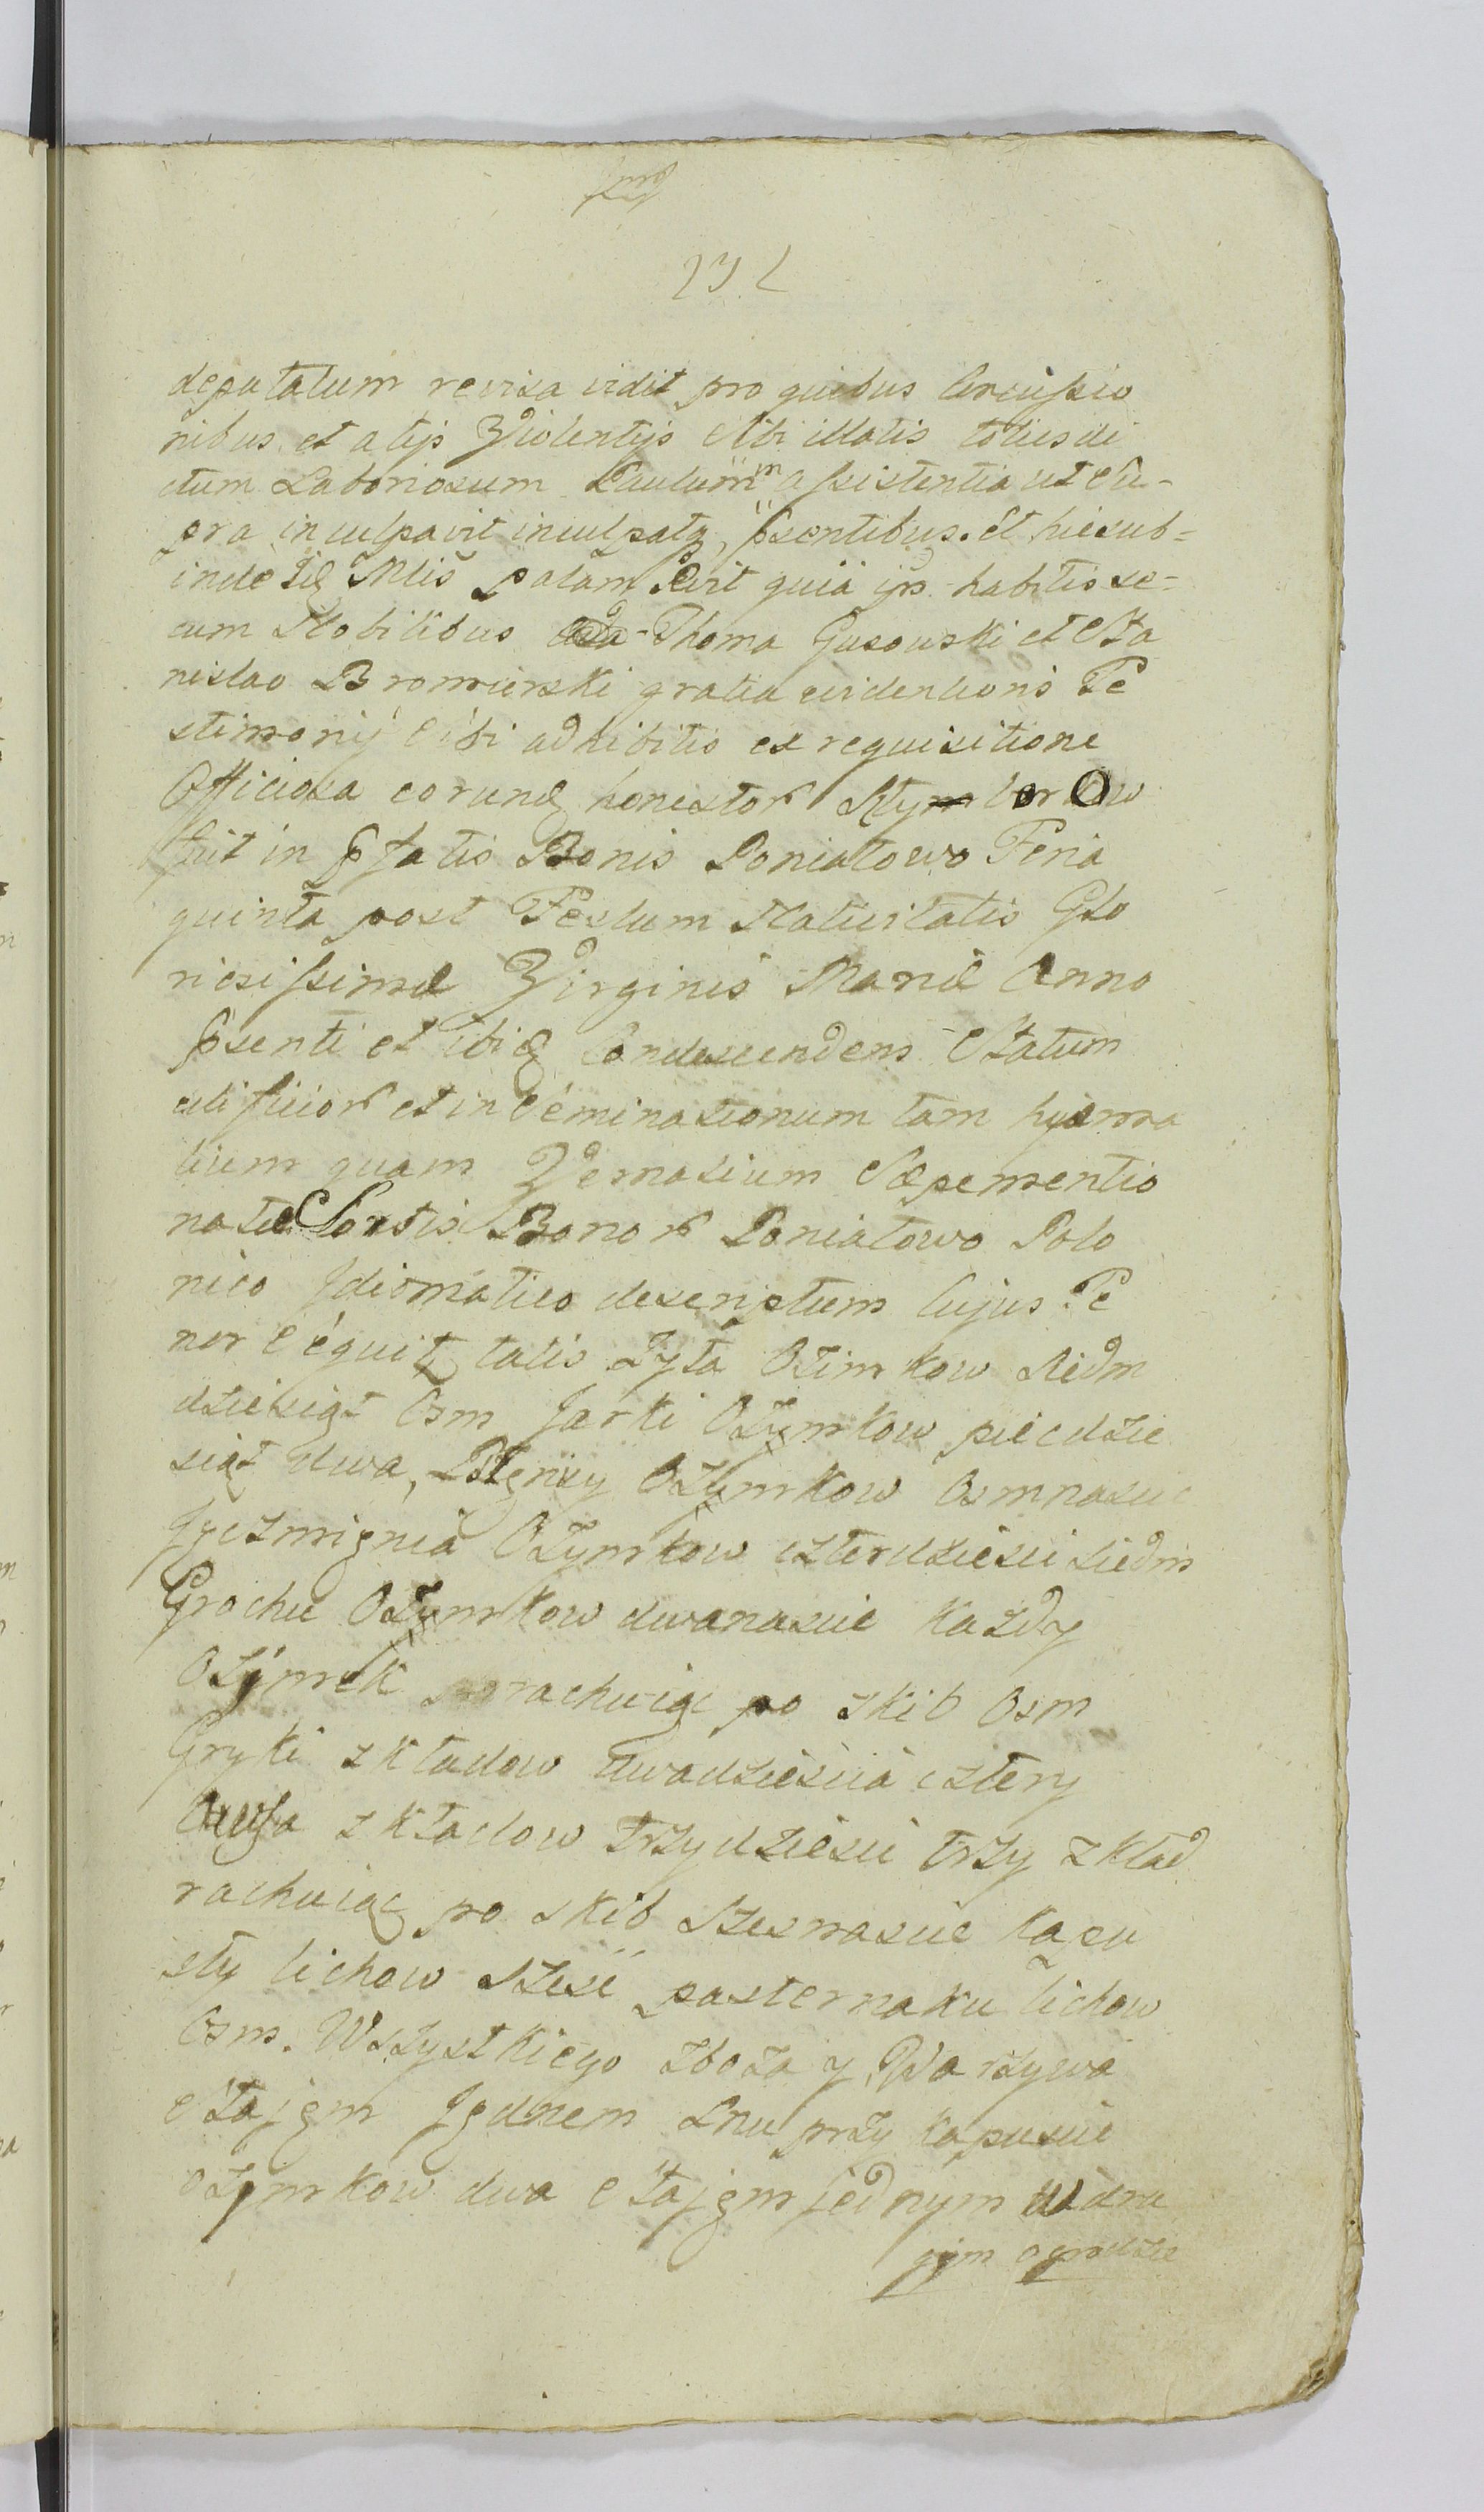 deputatum revisa vidit pro quibus Concussio
nibus et alijs Violentijs sibi illatis totiesdi
ctum Laboriosum Paulum assistentia ut su-
pra inculpavit inculpatq, pšentibus. et hicsub=
inde Idq Mlis palam Rvit quia ips habitis se-
cum Nobilibus Thoma Gusowski et Sta
nislao Bromirski gratia evidentioris Te
stimonij sibi adhibitis ex requisitione
Officiosa eorund honestor
fuit in pfatis Bonis Poniatowo Feria
quinta post Festum Nativitatis Glo
riosissimæ Virginis Mariæ Anno
pśenti et ibiq Condescendens Statum
ædificior et inseminationum tam hyema
lium quam Vernalium Sæpementio
natæ Sortis Bonor Poniatowo Polo
nico Idiomatico descriptum Cujus Te
nor Sequit talis Zyta Ozimkow Siedm
dziesiąt Osm Jarki Ozymkow piecdzie
siąt dwa, Pszęnicy Ozymkow Osmnascie
Jęczmięnia Ozymkow czterdziesci siedm
Grochu Ozymkow dwanascie Każdy
Ozymek rachuiąc po skib Osm
Gryki zkładow dwadziescia cztery
Owsa zkładow trzydziesci trzy zkład
rachuiąc po skib szesnascie Kapu
sty lichow szesć pasternaku lichow
Osm. Wszystkiego zboża y Warzywa
Stajęm Jędnem Lnu przy kapuscie
ozymkow dwa Stajęm jednym w dru
gim ogrodzie